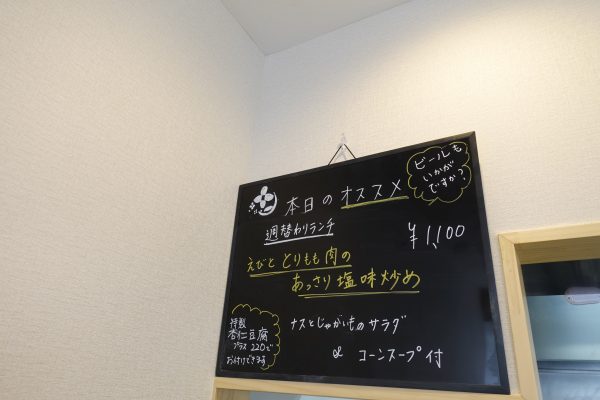 本日のオススメ
ビールも
いかが
ですか?
週替わりランチ
¥1,100
えびととりもも肉の
あっさり塩味炒め
ナスとじゃがいものサラダ
& コーンスープ付
特製
杏仁豆腐
プラス220で
お付けできます